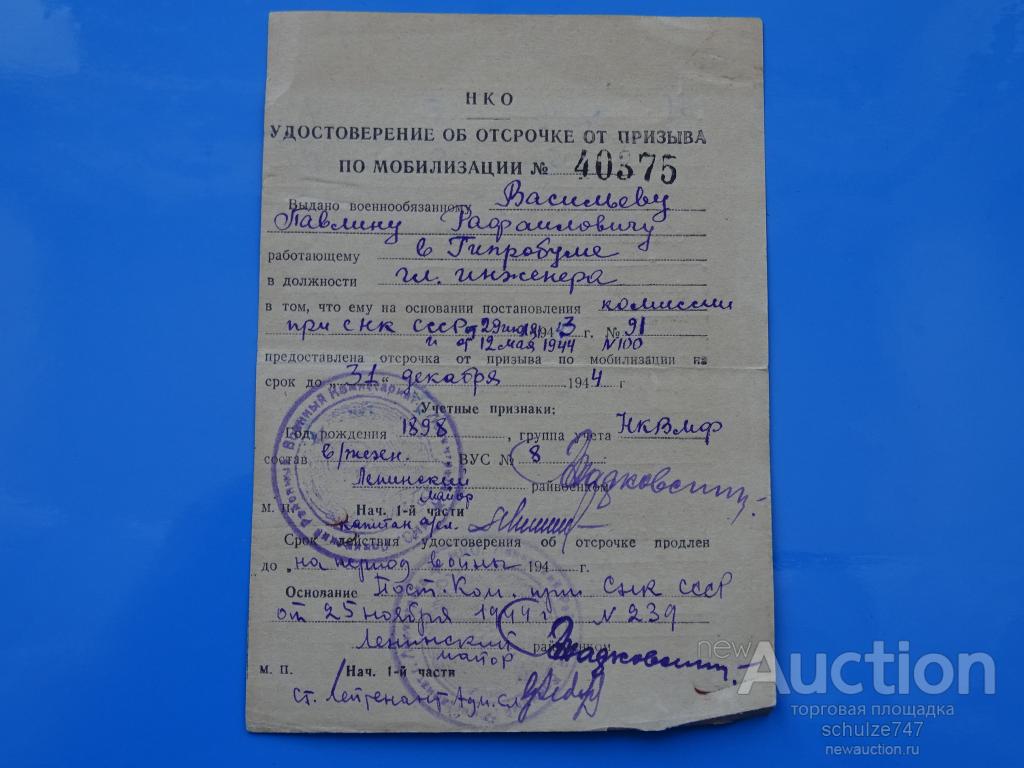 НКО
УДОСТОВЕРЕНИЕ ОБ ОТСРОЧКЕ ОТ ПРИЗЫВА
ПО МОБИЛИЗАЦИИ № 40375
Выдано военнообязанному Васильеву
Павлину Рафаиловичу
работающему в Гипробуме
в должности гл. инженера
в том, что ему на основании постановления комиссии
при СНК СССР от 29 1943 г. № 91
и от 12 мая 1944 N 100
предоставлена отсрочка от призыва по мобилизации на
срок до „31“ декабря 1944 г
Учетные признаки:
Год рождения 1898, группа учета НКВМФ
состав ВУС № 8
Ленинский райвоенком
майор
М. П. Нач. 1-й части
капитан а/сл.
Срок действия удостоверения об отсрочке продлен
до „на период войны 194 г.
Основание Пост. Ком. при СНК СССР
от 25 ноября 1944 г N 239
Ленинский райвоенком
майор
М. П. Нач. 1-й части
Ст. Лейтенант Адм. сл.
newAuction
торговая площадка
schulze747
newauction.ru